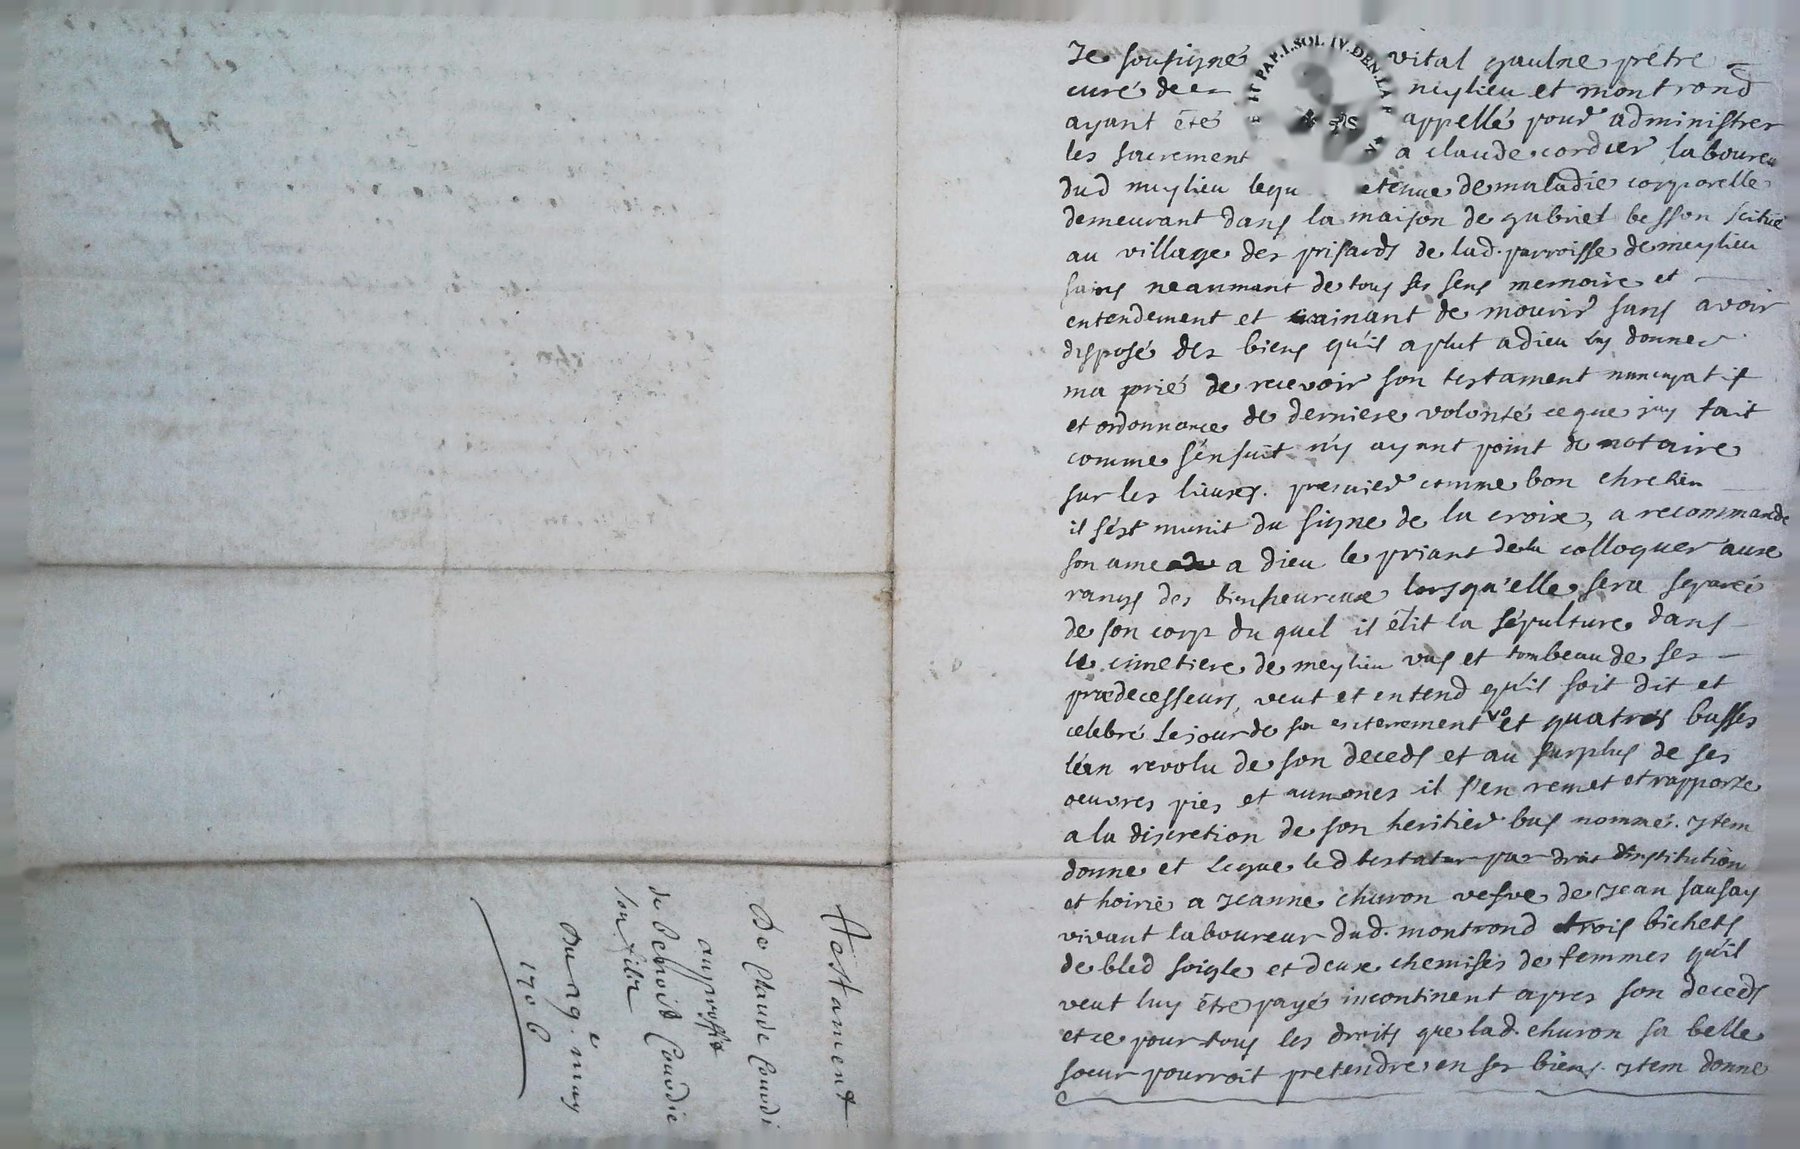 Je sousigné vital gaulne prétre
curé de meylieu et montrond
ayant été appellé pour administrer
les sacrement a claude cordier laboureu
dud meylieu lequ etenue de maladie corporelle
demeurant dans la maison de gabriel besson scitué
au village des prisards de lad. parroisse de meylieu
sains neanmant de tous ses sens memoire et
entendement et crainant de mourir sans avoir
disposé des biens qu'il a plut a dieu luy donner
ma prié de recevoir son testament nuncupatif
et ordonnance de derniere volonté ce que jay fait
comme s'ensuit n'y ayant point de notaire
sur les lieuxs. premier comme bon chretien
il s'est munit du signe de la croix, a recommandé
son ame a dieu le priant de la colloquer aux
rangs des bienheureux lorsqu'elle sera separeé
de son corp du quel il élit la sépulture dans
le cimetiere de meylieu vas et tombeau de ses
prædecesseurs, veut et entend qu'il soit dit et
celebré le jour de son enterrement et quatres basses
l'an revolu de son deceds et au surplus de ses
oeuvres pies et aumones il s'en remet et rapporte
a la discretion de son heritier bas nommé. Jtem
donne et legue led testatur par droit d'institution
et hoirie a Jeanne churon vefve de Jean sausay
vivant laboureur dud. montrond trois bichets
de bled soigle et deux chemises de femmes qu'il
veut luy étre payés incontinent apres son deceds
et ce pour tous les droits que lad. churon sa belle
soeur pourroit pretendre en ses biens. Jtem donne
Testament
De Claude Courdi
au proffit
de Benoist Courdie
son filz
Du 29e may
1706
ET PAP. I. SOL IV. DEN. LA F